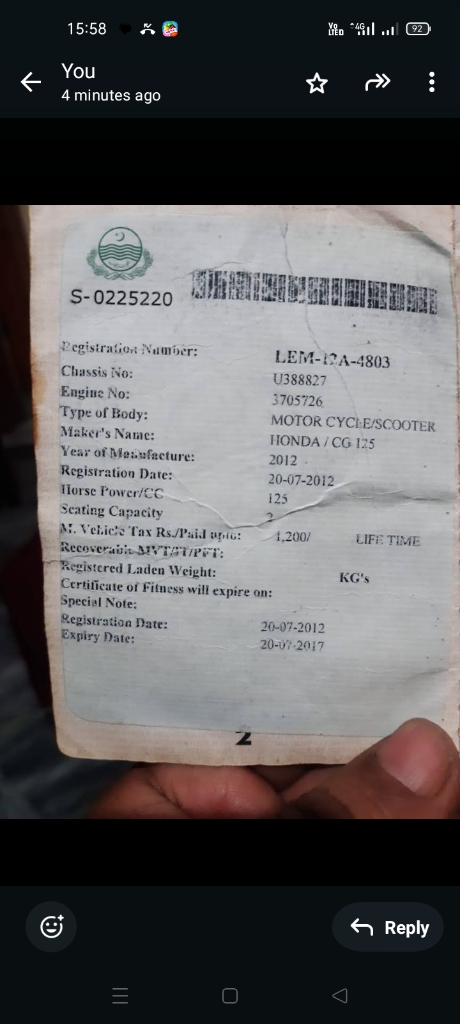 15:58
Vo LTED 4G 92
You
4 minutes ago
S-0225220
Registration Number: LEM-12A-4803
Chassis No: U388827
Engine No: 3705726
Type of Body: MOTOR CYCLE/SCOOTER
Maker's Name: HONDA / CG 125
Year of Manufacture: 2012
Registration Date: 20-07-2012
Horse Power/CC 125
Seating Capacity 2
M. Vehicle Tax Rs./Paid upto: 1,200/ LIFE TIME
Recoverable MVT/IT/PFT:
Registered Laden Weight: KG's
Certificate of Fitness will expire on:
Special Note:
Registration Date: 20-07-2012
Expiry Date: 20-07-2017
2
Reply